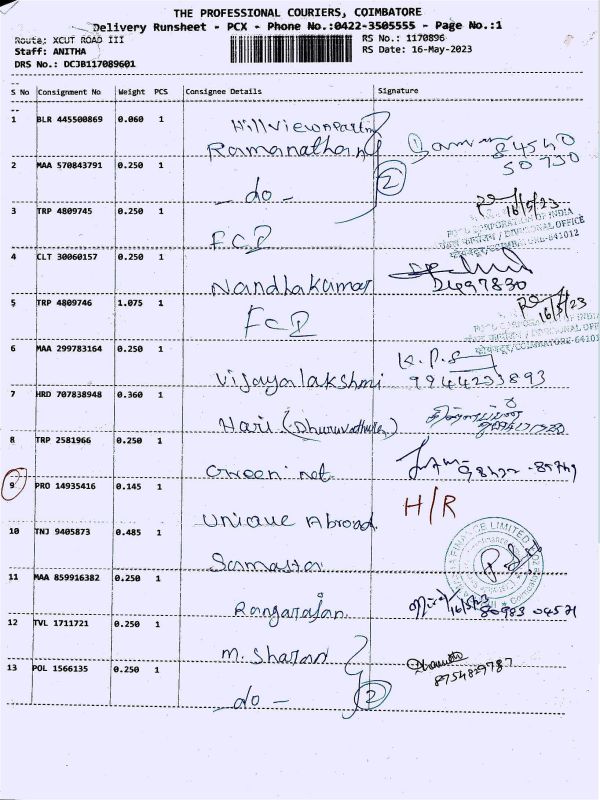 THE PROFESSIONAL COURIERS, COIMBATORE
Delivery Runsheet - PCX - Phone No.:0422-3505555 - Page No.:1
Route: XCUT ROAD III
RS No.: 1170896
Staff: ANITHA
RS Date: 16-May-2023
DRS No.: DCJB117089601
S No Consignment No Weight PCS Consignee Details Signature
1 BLR 445500869 0.060 1
Ramanathan
84540
50730
2 MAA 570843791 0.250 1
- do - 2
16/5/23
3 TRP 4809745 0.250 1
FCI
CORPORATION OF INDIA
DIVISIONAL OFFICE
COIMBATORE-641012
4 CLT 30060157 0.250 1
Nandhakumar
5 TRP 4809746 1.075 1
FCI
16/5/23
6 MAA 299783164 0.250 1
Vijayalakshmi K.P.S
9944233893
7 HRD 707838948 0.360 1
Hari
8 TRP 2581966 0.250 1
Green net
9 PRO 14935416 0.145 1
Unique Abroad H/R
10 TNJ 9405873 0.485 1
Samasta
FINANCE LIMITED
11 MAA 859916382 0.250 1
Rangarajan 16/5/23
12 TVL 1711721 0.250 1
M. Sharan
13 POL 1566135 0.250 1
- do - 2